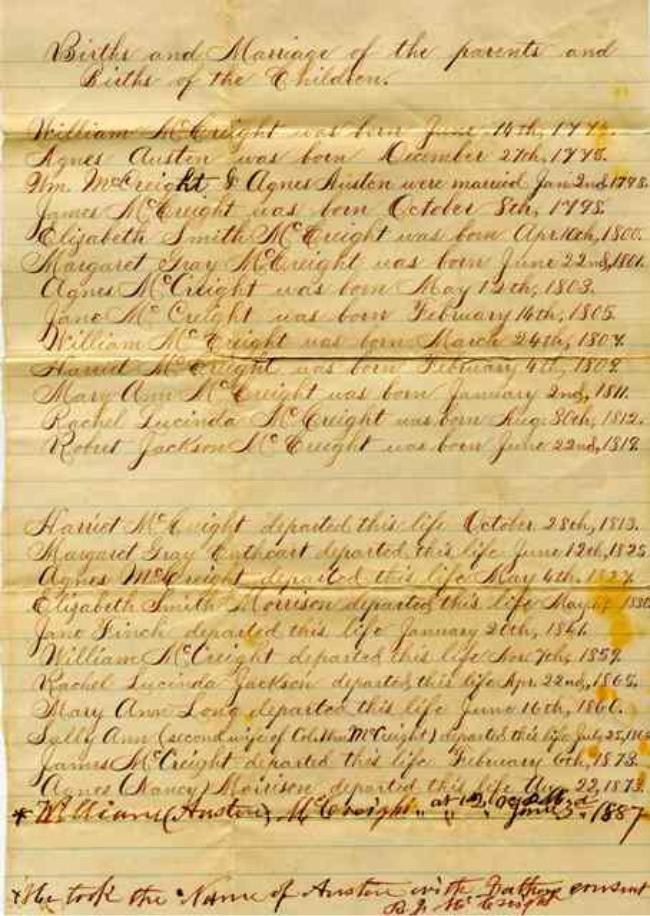 Births and Marriage of the parents and
Births of the Children.
William McCreight was born June 14th, 177
Agnes Austen was born December 27th, 1778.
Wm. McCreight & Agnes Austen were married Jan 2nd, 1798.
James McCreight was born October 8th, 1798.
Elizabeth Smith McCreight was born Apr. 10th, 1800.
Margaret Gray McCreight was born June 22nd, 1801.
Agnes McCreight was born May 12th, 1803.
Jane McCreight was born February 14th, 1805.
William McCreight was born March 24th, 1807.
Harriet McCreight was born February 4th, 1809.
Mary Ann McCreight was born January 2nd, 1811.
Rachel Lucinda McCreight was born Aug. 30th, 1812.
Robert Jackson McCreight was born June 22nd, 1819.
Harriet McCreight departed this life October 28th, 1813.
Margaret Gray Cathcart departed this life June 12th, 1825
Agnes McCreight departed this life May 4th, 1827.
Elizabeth Smith Morrison departed this life May
Jane Finch departed this life January
William McCreight departed this life Nov 7th, 1859.
Rachel Lucinda Jackson departed this life Apr. 22nd, 1865.
Mary Ann Long departed this life June 16th, 1866.
Sally Ann (second wife of Col. Wm McCreight) departed this life July 25,
James McCreight departed this life February 6th, 1873.
Agnes (Nancy) Morrison departed this life 22, 1873.
* William (Austen) McCreight " at 12 June 3rd 1887
* He took the Name of Austen with Fathers consent
R. J. McCreight